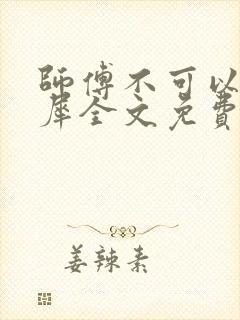 師傅不可以
犀全文免費
姜辣素